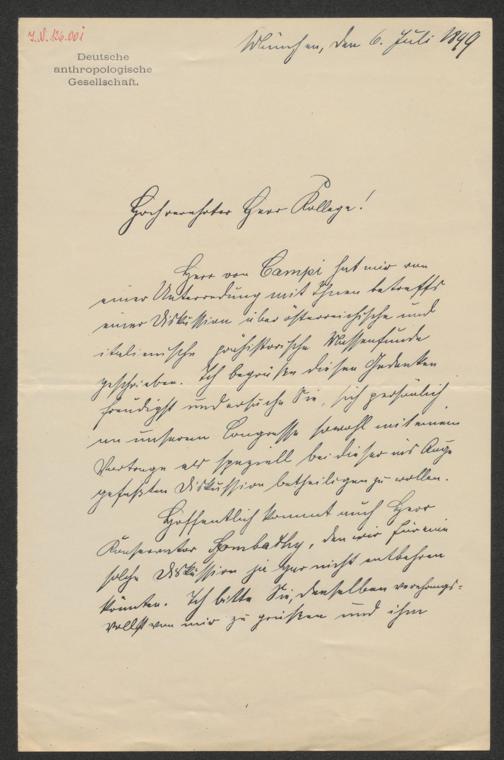 I.N. 126.001
Deutsche
anthropologische
Gesellschaft.
München, den 6. Juli 1899
Hochverehrter Herr Kollege!
Herr von Campi hat mir von
einer Unterredung mit Ihnen betreffs
einer Diskussion über österreichische und
italienische prähistorische Waffenfunde
geschrieben. Ich begrüße diesen Gedanken
freudigst und ersuche Sie, sich persönlich
an unserem Congresse sowohl mit einem
Vortrage als speziell bei dieser ins Auge
gefaßten Diskussion betheiligen zu wollen.
Hoffentlich kommt auch Herr
Konservator Szombathy, den wir für eine
solche Diskussion ja gar nicht entbehren
könnten. Ich bitte Sie, denselben verehrungs-
vollst von mir zu grüßen und ihm